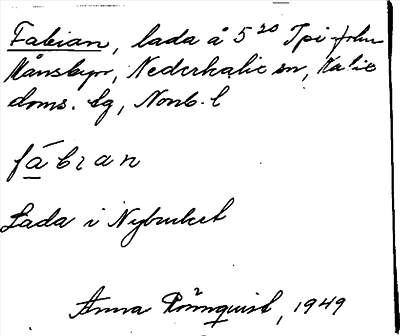 Fabian, lada å 5²⁰ Tpi fohn
Månsbyn, Nederkalix sn, Kalix
doms. lg, Norrb. l
fàbran
Lada i Nybruket
Anna Rönnquist, 1949